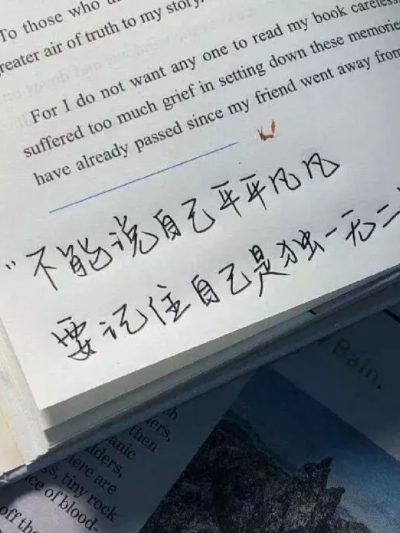 To those who
greater air of truth to my story,
For I do not want any one to read my book
suffered too much grief in setting down these memories
have already passed since my friend went away from
"不能说自己平平凡凡
要记住自己是独一无二
Bain.
then
there are
tiny rock
of blood-
off the